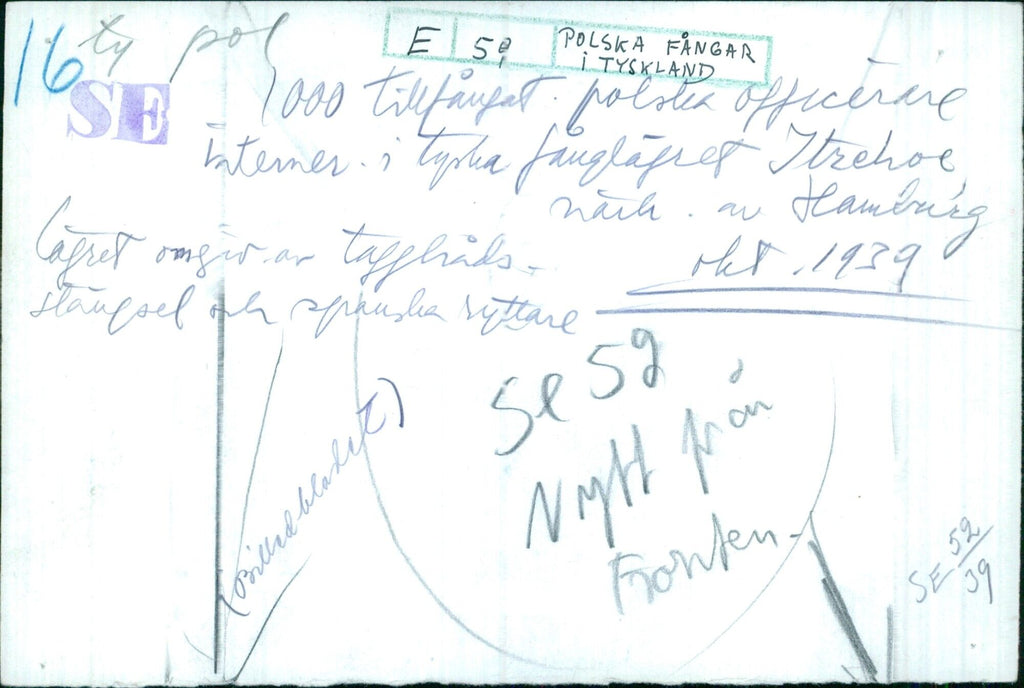 16 ty pol
E 59 POLSKA FÅNGAR
I TYSKLAND
SE
1000 tillfångat. polska officerare
interner. i tyska fånglägret Itzehoe
närh. av Hamburg
okt. 1939
Lägret omgiv. av taggtråds-
stängsel och spanska ryttare
Se 52
Nytt från
Fronten-
(Billedbladet)
SE 52/39